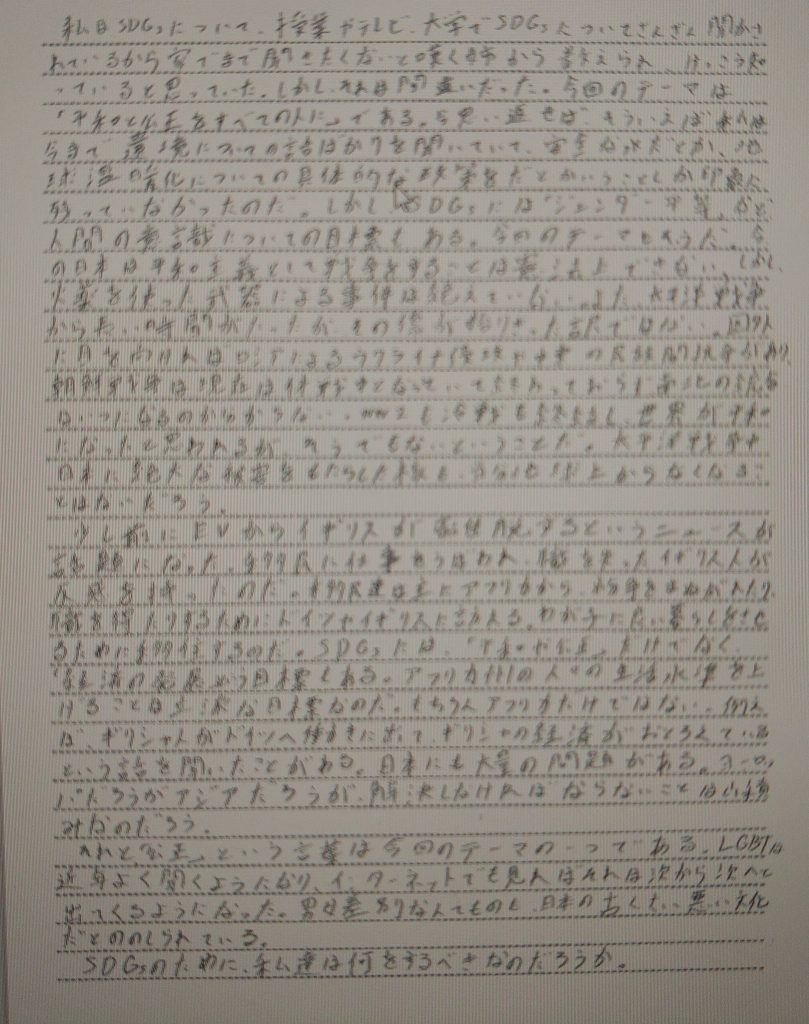 私はSDGsについて、授業やテレビ、大学でSDGsについてさんざん聞かさ
れているから家でまで聞きたくないと嘆く姉から教えられ、けっこう知
っていると思っていた。しかしそれは間違いだった。今回のテーマは
「平和と公正をすべての人に」である。思い返せば、そういえば私は
今まで環境についての話ばかりを聞いていて、安全な水だとか、地
球温暖化についての具体的な政策をだとかいうことしか印象に
残っていなかったのだ。しかしSDGsには「ジェンダー平等」など
人間の意識についての目標もある。今回のテーマもそうだ。今
の日本は平和主義として戦争をすることは憲法上できない。しかし、
火薬を使った武器による事件は絶えていない。また、太平洋戦争
から長い時間がたったがその傷が癒りきった訳ではない。国外
に目を向ければロシアによるウクライナ侵攻や の民族間紛争があり、
朝鮮戦争は現在は休戦中となっていて終わっておらず南北の統合
はいつになるのかわからない。WW2も冷戦も終結し、世界が平和
になったと思われるが、そうでもないということだ。太平洋戦争中
日本に絶大な被害をもたらした核も、 地球上からなくなるこ
とはないだろう。
少し前にEVからイギリスが 脱するというニュースが
話題になった。移民に仕事をうばわれ、職を失ったイギリス人が
反感を持ったのだ。移民達は主にアフリカから、紛争をまぬがれたり、
職を得たりするためにドイツやイギリスに 、わが子に良い暮らしをさせ
るために移住するのだ。SDGsには、「平和や公正」だけでなく
「経済の発展」いう目標もある。アフリカ州の人々の生活水準を上
げることは立派な目標なのだ。もちろんアフリカだけではない。例え
ば、ギリシャ人がドイツへ働きに出て、ギリシャの経済がおとろえている
という話を聞いたことがある。日本にも大量の問題がある。ヨーロッ
パだろうがアジアだろうが、解決しなければならないことは山積
みなのだろう。
「 と公正」という言葉は今回のテーマの一つである。LGBTは
近年よく聞くようになり、インターネットでも見ればそれは次から次へと
出てくるようになった。男女差別なんてものも、日本の古くさい悪い文化
だとののしられている。
SDGsのために、私達は何をするべきなのだろうか。